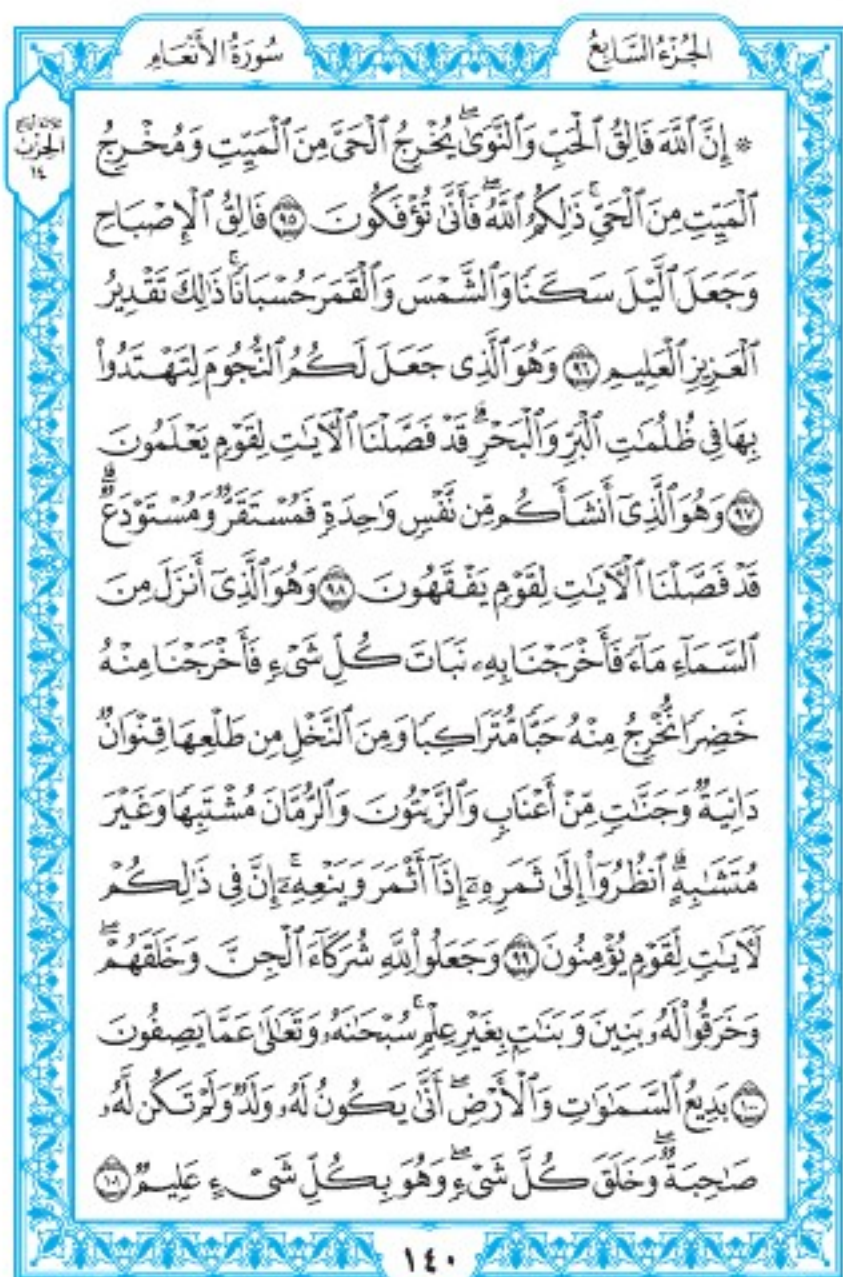 الجُزْءُ السَّابِعُ
سُورَةُ الأَنْعَامِ
الحِزْبُ
١٤
* إِنَّ ٱللَّهَ فَالِقُ ٱلْحَبِّ وَٱلنَّوَىٰۖ يُخْرِجُ ٱلْحَىَّ مِنَ ٱلْمَيِّتِ وَمُخْرِجُ
ٱلْمَيِّتِ مِنَ ٱلْحَىِّۚ ذَٰلِكُمُ ٱللَّهُۖ فَأَنَّىٰ تُؤْفَكُونَ ٩٥ فَالِقُ ٱلْإِصْبَاحِ
وَجَعَلَ ٱلَّيْلَ سَكَنًا وَٱلشَّمْسَ وَٱلْقَمَرَ حُسْبَانًاۚ ذَٰلِكَ تَقْدِيرُ
ٱلْعَزِيزِ ٱلْعَلِيمِ ٩٦ وَهُوَ ٱلَّذِى جَعَلَ لَكُمُ ٱلنُّجُومَ لِتَهْتَدُوا۟
بِهَا فِى ظُلُمَٰتِ ٱلْبَرِّ وَٱلْبَحْرِۗ قَدْ فَصَّلْنَا ٱلْءَايَٰتِ لِقَوْمٍ يَعْلَمُونَ
٩٧ وَهُوَ ٱلَّذِىٓ أَنشَأَكُم مِّن نَّفْسٍ وَٰحِدَةٍ فَمُسْتَقَرٌّ وَمُسْتَوْدَعٌۗ
قَدْ فَصَّلْنَا ٱلْءَايَٰتِ لِقَوْمٍ يَفْقَهُونَ ٩٨ وَهُوَ ٱلَّذِىٓ أَنزَلَ مِنَ
ٱلسَّمَآءِ مَآءً فَأَخْرَجْنَا بِهِۦ نَبَاتَ كُلِّ شَىْءٍ فَأَخْرَجْنَا مِنْهُ
خَضِرًا نُّخْرِجُ مِنْهُ حَبًّا مُّتَرَاكِبًا وَمِنَ ٱلنَّخْلِ مِن طَلْعِهَا قِنْوَانٌ
دَانِيَةٌ وَجَنَّٰتٍ مِّنْ أَعْنَابٍ وَٱلزَّيْتُونَ وَٱلرُّمَّانَ مُشْتَبِهًا وَغَيْرَ
مُتَشَٰبِهٍۗ ٱنظُرُوٓا۟ إِلَىٰ ثَمَرِهِۦٓ إِذَآ أَثْمَرَ وَيَنْعِهِۦٓۚ إِنَّ فِى ذَٰلِكُمْ
لَءَايَٰتٍ لِّقَوْمٍ يُؤْمِنُونَ ٩٩ وَجَعَلُوا۟ لِلَّهِ شُرَكَآءَ ٱلْجِنَّ وَخَلَقَهُمْۖ
وَخَرَقُوا۟ لَهُۥ بَنِينَ وَبَنَٰتٍۭ بِغَيْرِ عِلْمٍۚ سُبْحَٰنَهُۥ وَتَعَٰلَىٰ عَمَّا يَصِفُونَ
١٠٠ بَدِيعُ ٱلسَّمَٰوَٰتِ وَٱلْأَرْضِۖ أَنَّىٰ يَكُونُ لَهُۥ وَلَدٌ وَلَمْ تَكُن لَّهُۥ
صَٰحِبَةٌۖ وَخَلَقَ كُلَّ شَىْءٍۖ وَهُوَ بِكُلِّ شَىْءٍ عَلِيمٌ ١٠١
١٤٠